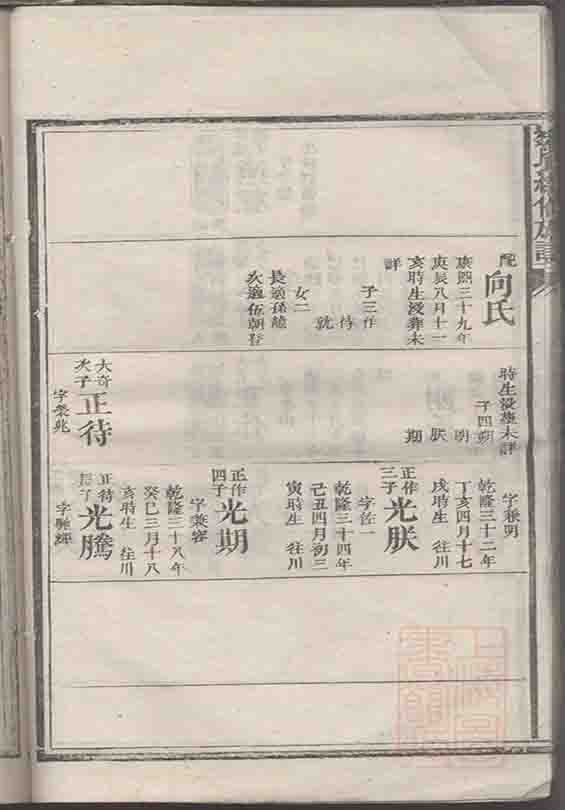 配向氏
康熙三十九年
庚辰八月十二
亥時生没葬未
詳
子三作
待
就
女二
長適孫
次適伍朝登
時生没葬未詳
子四朔
明
朕
期
大奇
次子正待
字蒙兆
字兼明
乾隆三十二年
丁亥四月十七
戌時生 往川
正作
三子光朕
字佐一
乾隆三十四年
己丑四月初三
寅時生 往川
正作
四子光期
字兼容
乾隆三十八年
癸巳三月十八
亥時生 往川
正待
長子光騰
上海圖書館藏